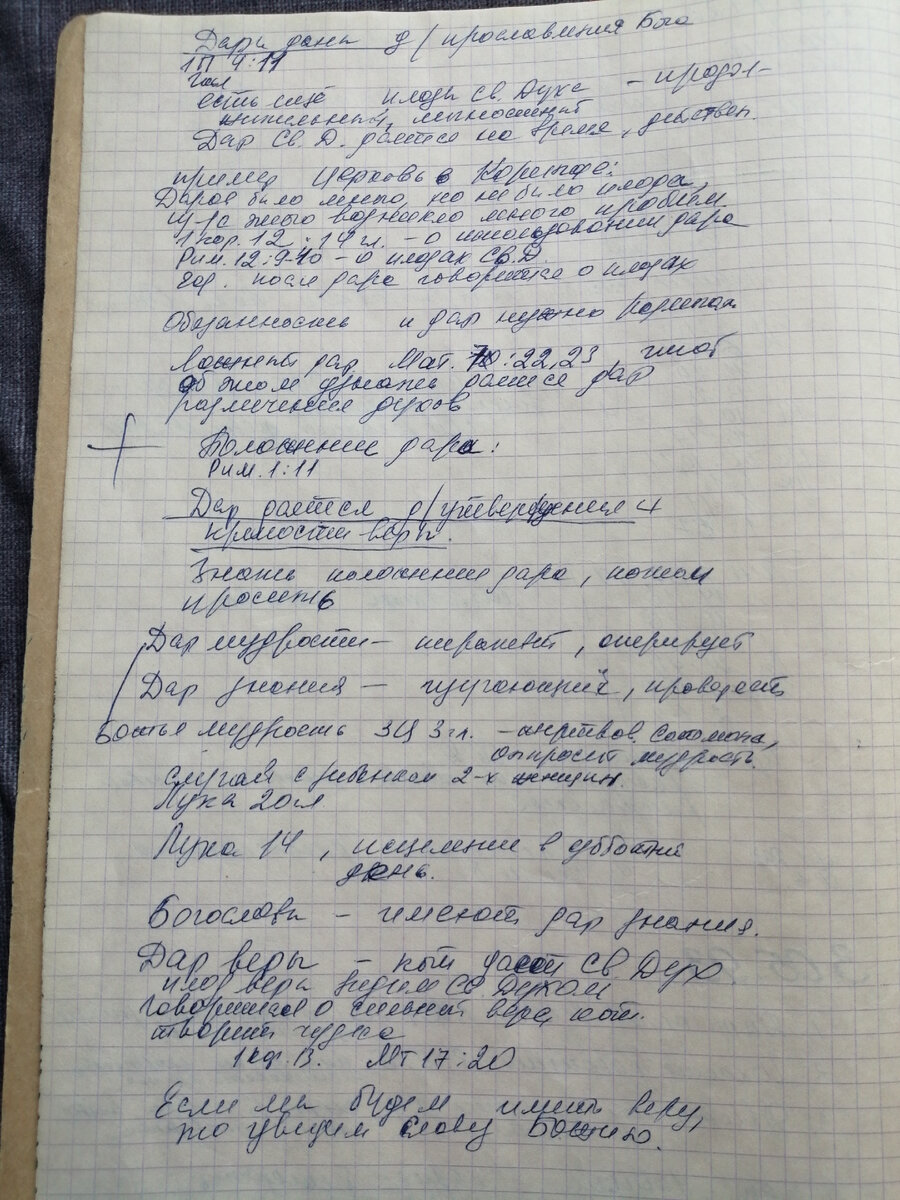 Дары даны д/прославления Бога
1П 4:11
Гал
есть ещё плоды Св. Духа - продол-
жительный,
Дар Св. Д. дается на время, действен.
пример Церковь в Коринфе:
Даров было много, но не было плода,
из-за этого возникло много проблем
1 Кор. 12:14 гл. - о использовании дара
Рим. 12:9-10 - о плодах Св. Д.
после дара говорится о плодах
Обязанность и дар нужно
Ложный дар Мат. 7:22,23, чтоб
об этом узнать дается дар
различения духов
Положение дара:
Рим. 1:11
Дар дается д/утверждения и
крепости веры.
Знать положение дара, потом
просить
Дар мудрости - терапевт, оперирует
Дар знания - изучающий, проверять
Божья мудрость 3Ц 3 гл. - жертвов. Соломона,
он просит мудрость.
случай с ребенком 2-х женщин.
Лука 20 гл
Лука 14, исцеление в субботний
день.
Богословы - имеют дар знания.
Дар веры - кот дает Св. Дух
плод веры Св. Духом
говорится о сильной вере, кот.
творит чудеса
1 Кор. 13. Мт 17:20
Если мы будем иметь веру,
то увидим славу Божию.